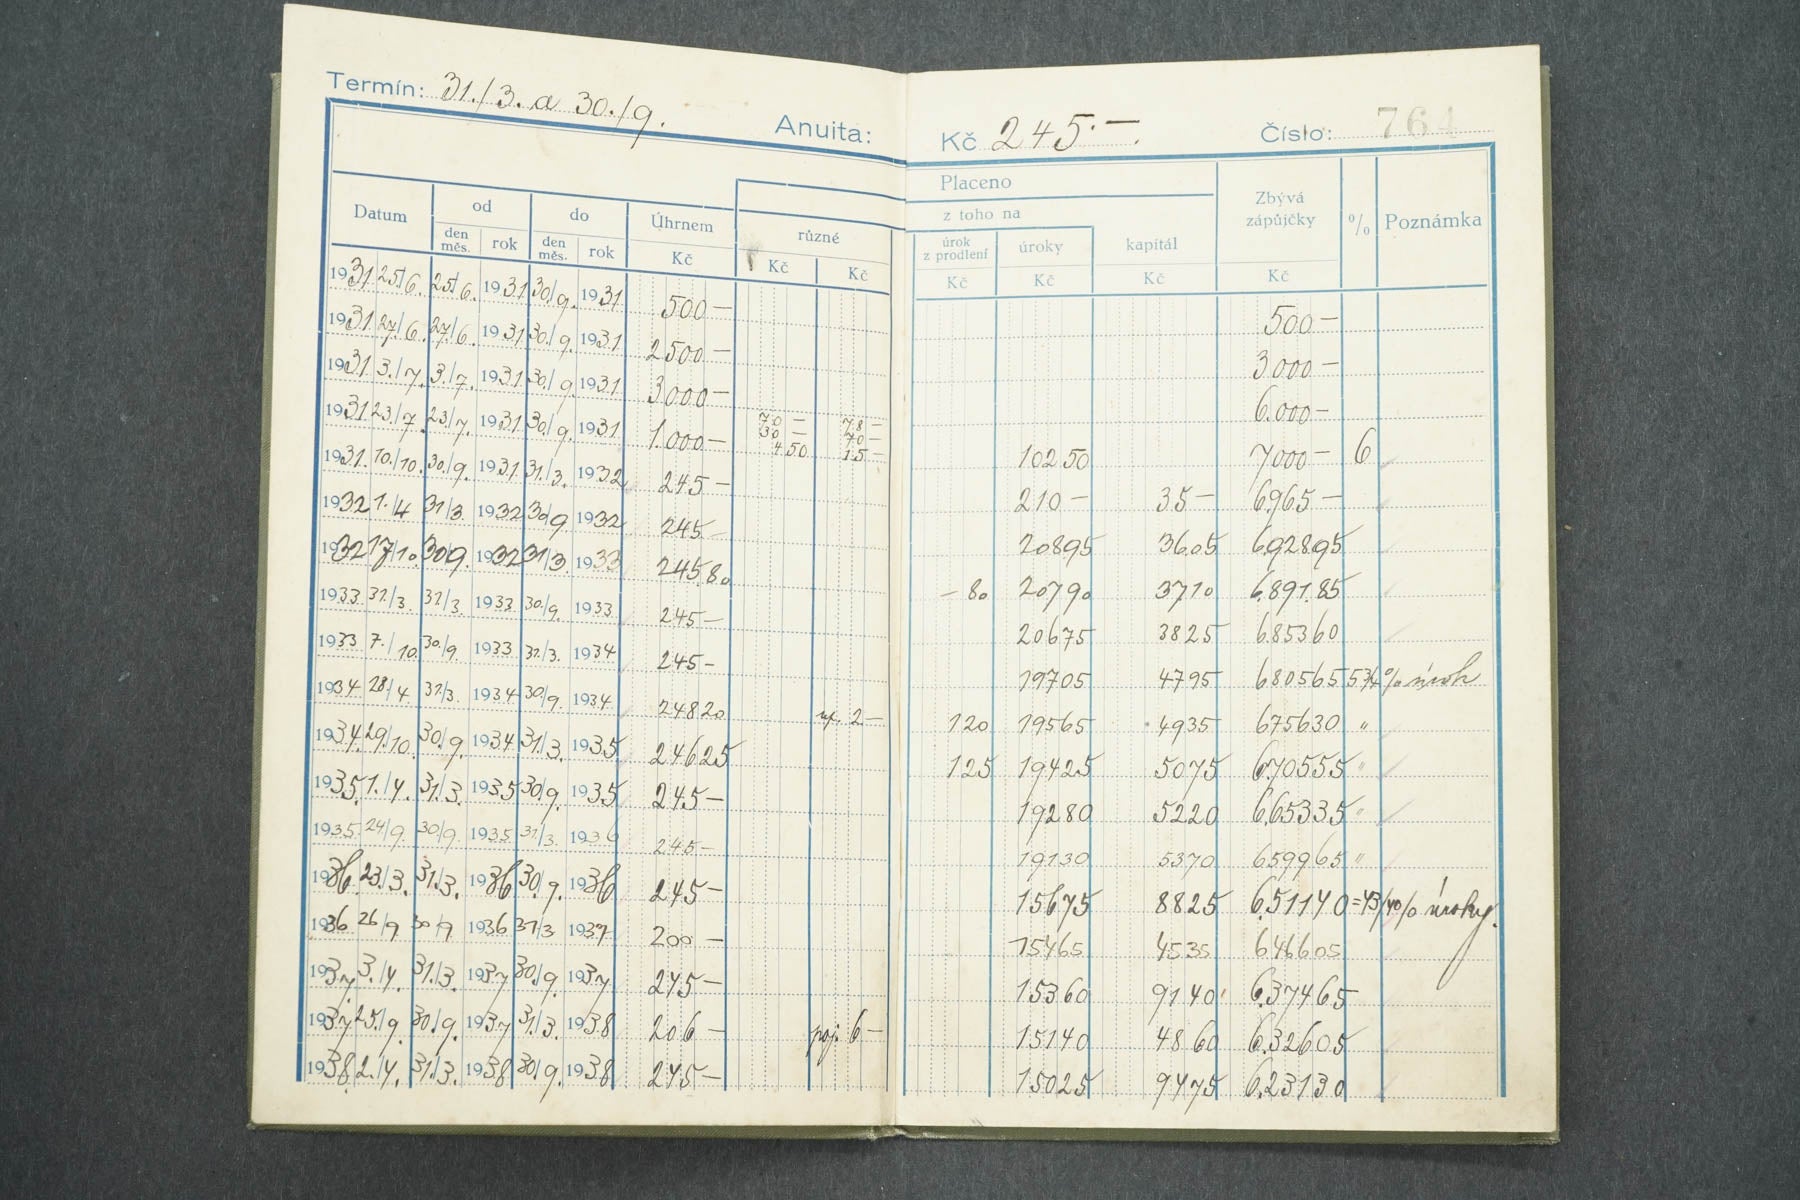 Termín: 31./3. a 30./9. Anuita: Kč 245.— Číslo: 764
Placeno
z toho na
Datum od do Úhrnem různé úrok z prodlení úroky kapitál Zbývá zápůjčky % Poznámka
den měs. rok den měs. rok Kč Kč Kč Kč Kč Kč Kč
1931 25/6. 25/6. 1931 30/9. 1931 500— 500—
1931 27/6. 27/6. 1931 30./9. 1931 2500— 3000—
1931 3./7. 3./7. 1931 30./9. 1931 3000— 6.000—
1931 23./7. 23/7. 1931 30/9. 1931 1.000— 70— 30— 4 50 78— 70— 15— 102 50 7000— 6
1931. 10./10. 30./9. 1931 31./3. 1932 245— 210— 35— 6.965—
1932 1./4 31/3. 1932 30/9 1932 245.— 208 95 36.05 6.928.95
1932 17/10. 30/9. 1932 31/3. 1933 245.80 —80 207 90 37 10 6.891.85
1933. 31./3. 31/3. 1933 30./9. 1933. 245— 206 75 38 25 6.853 60
1933 7./10. 30/9. 1933 31./3. 1934 245— 197 05 47 95 6805 65 5 3/4 % úrok
1934. 28/4. 31/3. 1934 30/9. 1934. 248 20 up. 2— 1 20 195 65 49 35 6756 30 "
1934. 29./10. 30./9. 1934 31./3. 1935 246 25 1 25 194 25 50 75 6.705 55 "
1935. 1./4. 31./3. 1935 30./9. 1935 245— 192 80 52 20 6.653 35 "
1935. 24/9. 30/9. 1935. 31/3. 1936 245— 191 30 53 70 6599 65 "
1936. 23./3. 31./3. 1936 30./9. 1936 245— 156 75 88 25 6.511 40 = 4 3/4 % úroky.
1936 26/9 30/9 1936 31/3 1937 200— 154 65 45 35 6466 05
1937. 3./4. 31./3. 1937 30./9. 1937 245— 153 60 91 40 6.374 65
1937 25./9. 30./9. 1937 31./3. 1938 206— poj. 6— 151 40 48 60 6.326 05
1938. 2./4. 31./3. 1938 30/9. 1938 245— 150 25 94 75 6.231 30